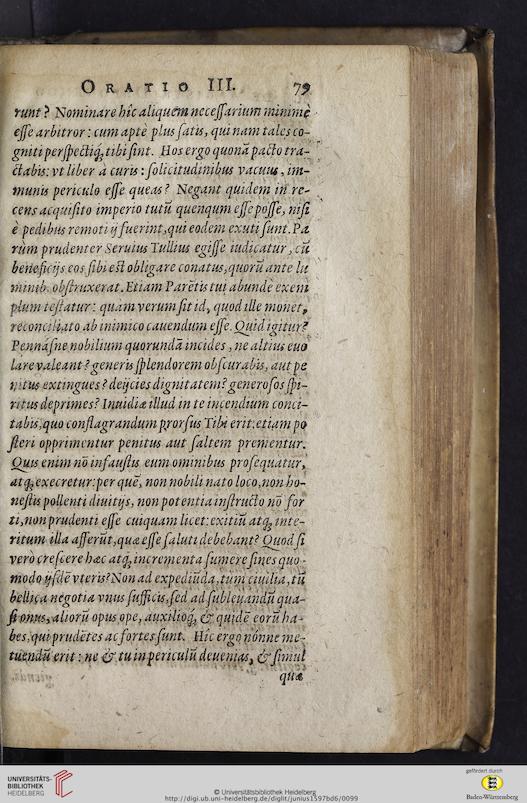 ORATIO III. 79
runt? Nominare hîc aliquem necessarium minimè
esse arbitror: cum aptè plus satis, qui nam tales co-
gniti perspectiq́, tibi sint. Hos ergo quonā pacto tra-
ctabis: vt liber à curis: solicitudinibus vacuus, im-
munis periculo esse queas? Negant quidem in re-
cens acquisito imperio tutū quenqum esse posse, nisi
è pedibus remoti ij fuerint, qui eodem exuti sunt. Pa
rùm prudenter Seruius Tullius egisse iudicatur, cū
beneficijs eos sibi est obligare conatus, quorū ante lu
minib. obstruxerat. Etiam Parētis tui abundè exem
plum testatur: quàm verum sit id, quod ille monet,
reconciliato ab inimico cauendum esse. Quid igitur?
Pennásne nobilium quorundā incides, ne altius euo
lare valeant? generis splendorem obscurabis, aut pe
nitus extingues? deijcies dignitatem? generosos spi-
ritus deprimes? Inuidiæ illud in te incendium conci-
tabis, quo conflagrandum prorsus Tibi erit: etiam po
steri opprimentur penitus aut saltem prementur.
Quis enim nō infaustis eum ominibus prosequatur,
atq, execretur: per quē, non nobili nato loco, non ho-
nestis pollenti diuitijs, non potentia instructo nō for
ti, non prudenti esse cuiquam licet: exitiū atq, inte-
ritum illa afferūt, quæ esse saluti debebant? Quod si
verò crescere hæc atq, incrementa sumere sines quo-
modo ijsdē vteris? Non ad expediūda, tum ciuilia, tū
bellica negotia vnus sufficis, sed ad subleuandū qua-
si onus, aliorū opus ope, auxilioq́, & quidē eorū ha-
bes, qui prudētes ac fortes sunt. Hîc ergo nónne me-
tuendū erit: ne & tu in periculū deuenias, & simul
quæ
UNIVERSITÄTS-
BIBLIOTHEK
HEIDELBERG
© Universitätsbibliothek Heidelberg
http://digi.ub.uni-heidelberg.de/diglit/junius1597bd6/0099
gefördert durch
Baden-Württemberg